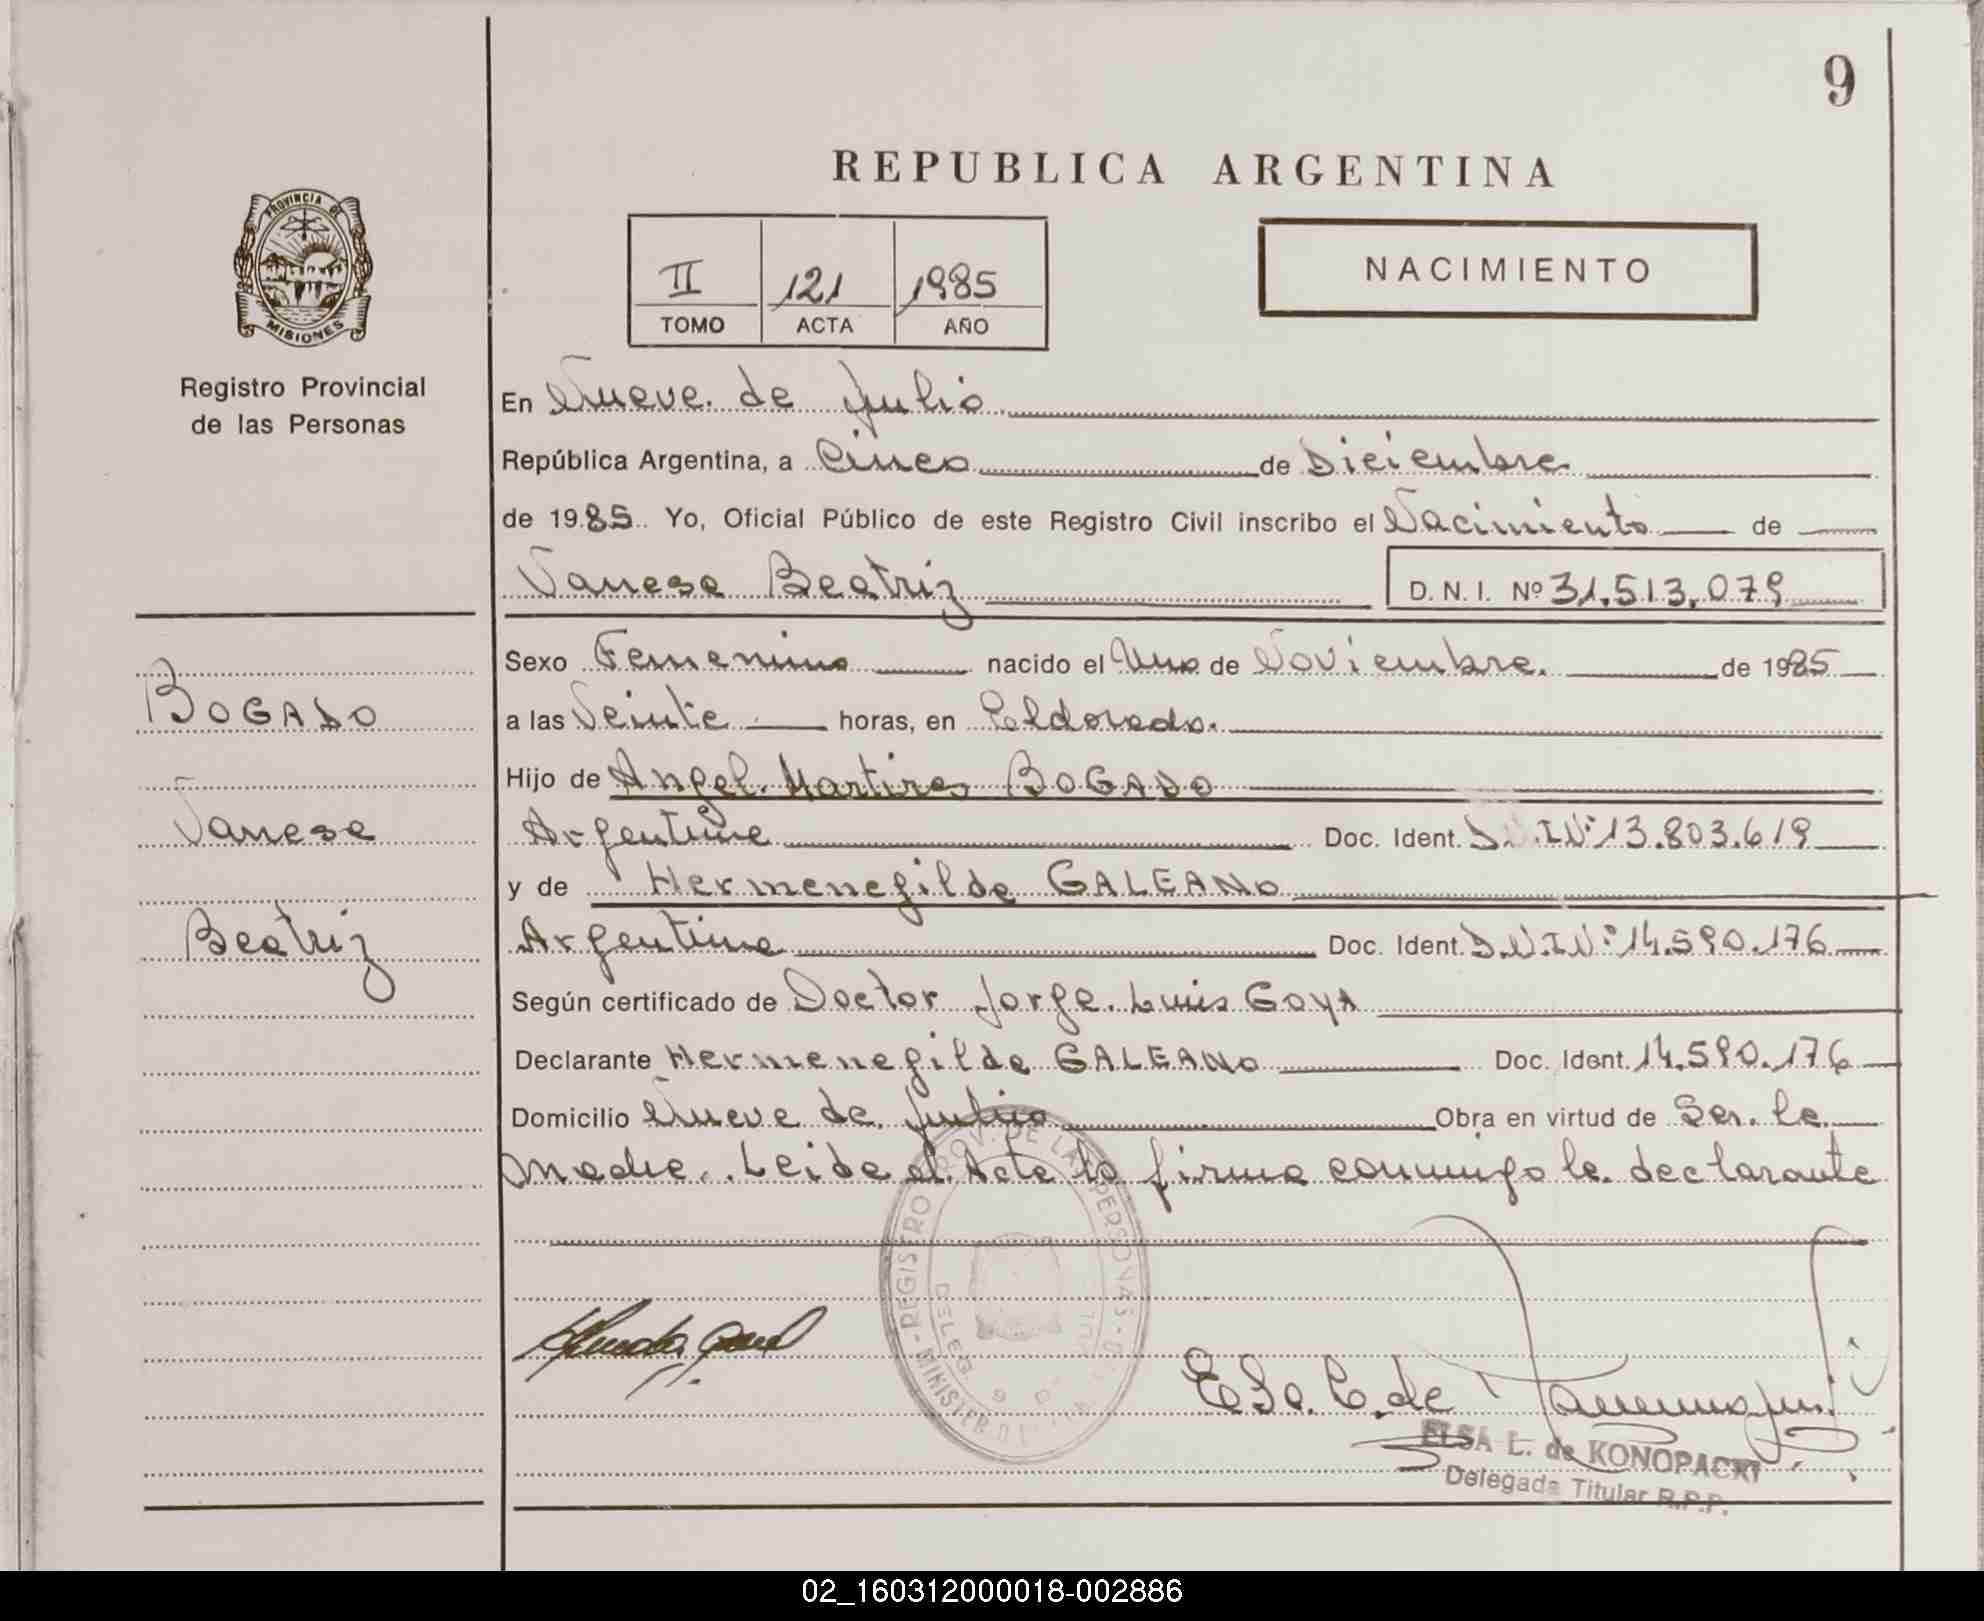 9
REPUBLICA ARGENTINA
PROVINCIA DE
MISIONES
Registro Provincial
de las Personas
II 121 1985
TOMO ACTA AÑO
NACIMIENTO
En Nueve de Julio
República Argentina, a Cinco de Diciembre
de 1985 Yo, Oficial Público de este Registro Civil inscribo el Nacimiento de
Vanesa Beatriz D. N. I. Nº 31.513.079
Sexo Femenino nacido el Uno de Noviembre. de 1985
a las Veinte horas, en Eldorado.
Hijo de Angel Martires BOGADO
Argentina Doc. Ident. D.N.I Nº 13.803.619
y de Hermenegilda GALEANO
Argentina Doc. Ident. D.N.I Nº 14.590.176
Según certificado de Doctor Jorge Luis Goya
Declarante Hermenegilda GALEANO Doc. Ident. 14.590.176
Domicilio Nueve de Julio Obra en virtud de Ser la
madre. Leida el Acta la firma conmigo la declarante
BOGADO
Vanesa
Beatriz
REGISTRO PROV. DE LAS PERSONAS
DELEG. 9 D JUL
MINISTER
ELSA L. de KONOPACKI
Delegada Titular R.P.P.
02_160312000018-002886